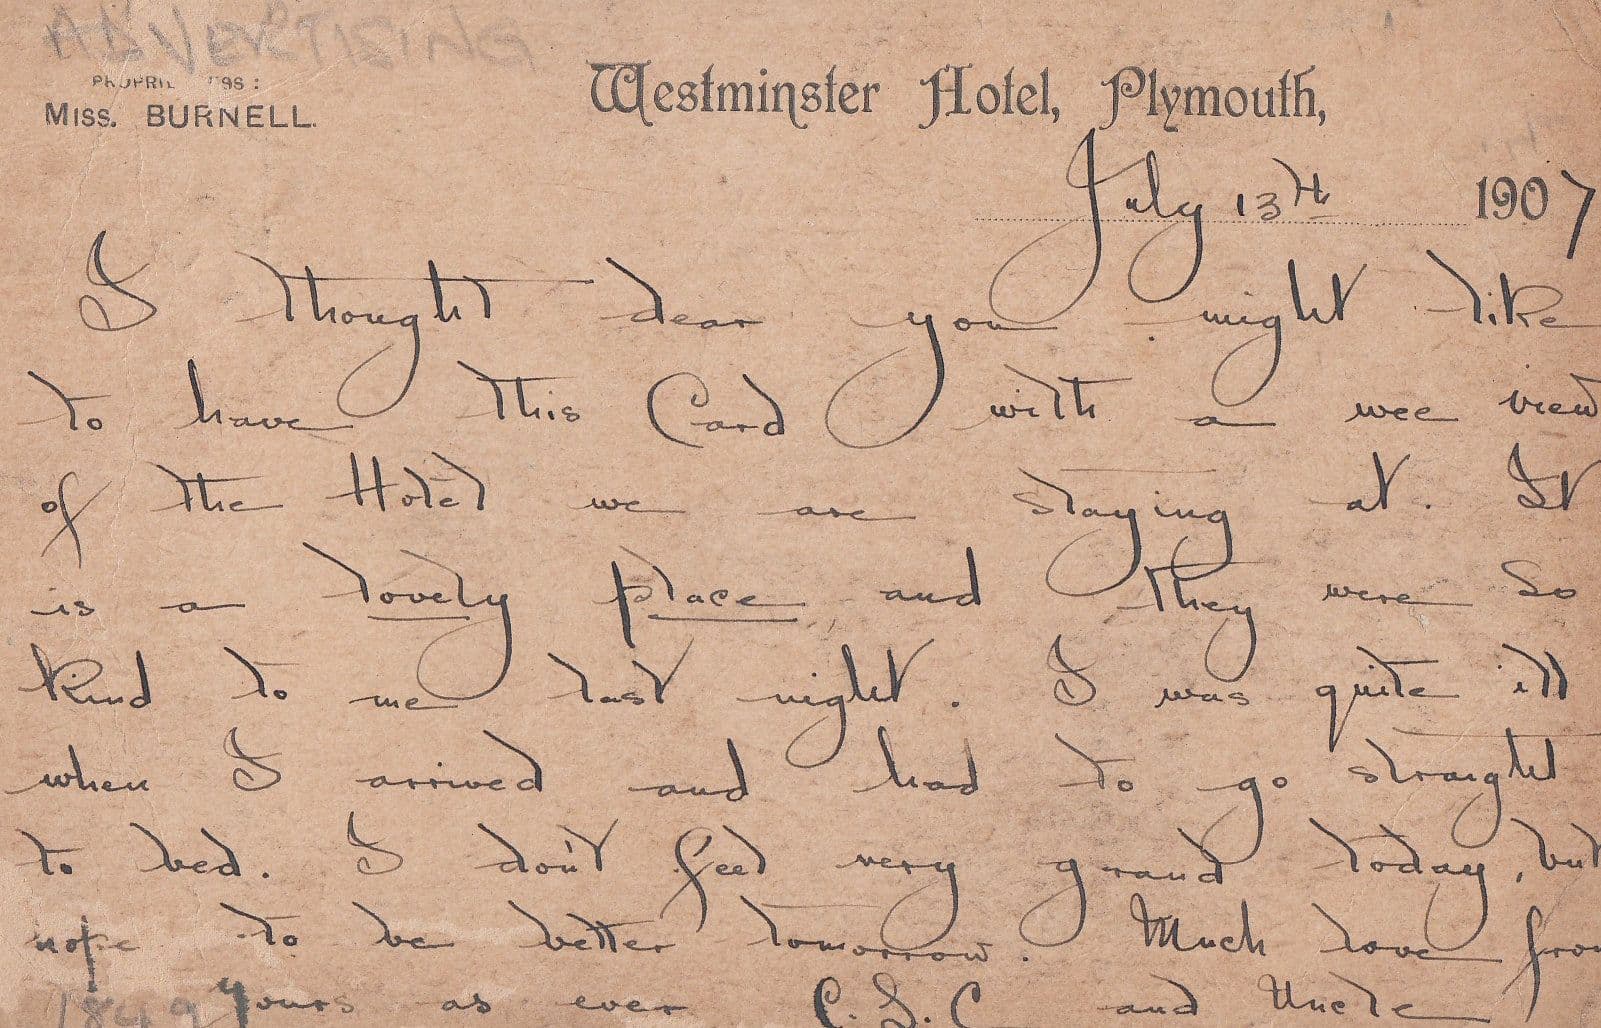 ADVERTISING
Miss. BURNELL.
Westminster Hotel, Plymouth,
July 13th 1907
I thought dear you might like
to have this Card with a wee view
of the Hotel we are staying at. It
is a lovely place and they were so
kind to me last night. I was quite ill
when I arrived and had to go straight
to bed. I don't feel very grand today, but
hope to be better tomorrow. Much love from
yours as ever C.S.C and Uncle
1849